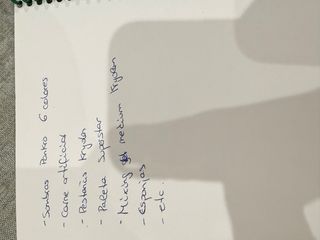 - Sombras Pankro 6 colores
- Carne artificial
- Pestañas Kryolan
- Paleta Superstar
- Mixing medium Kryolan
- Esponjas
- etc.